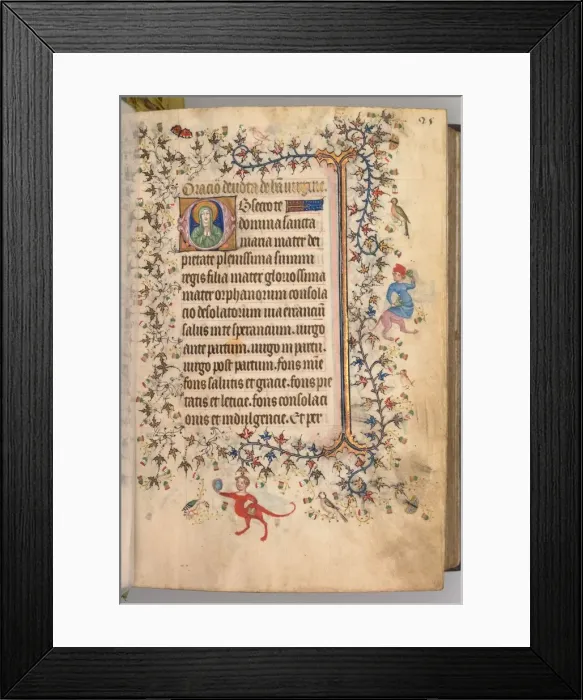 Oracio deuota de bt̄a uirgine.
Obsecro te
domina sancta
maria mater dei
pietate plenissima summi
regis filia mater gloriosissima
mater orphanorum consola
cio desolatorum uia errantiū
salus in te sperancium. uirgo
ante partum. uirgo in partu.
uirgo post partum. fons mīe
fons salutis et gracie. fons pie
tatis et leticie. fons consolaci
onis et indulgencie. Et per